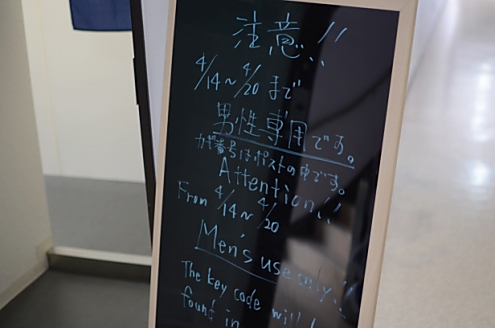 注意!!
4/14〜4/20まで
男性専用です。
カギ番号はポストの中です。
Attention!!
From 4/14〜4/20
Men's use only!!
The key code will
found in